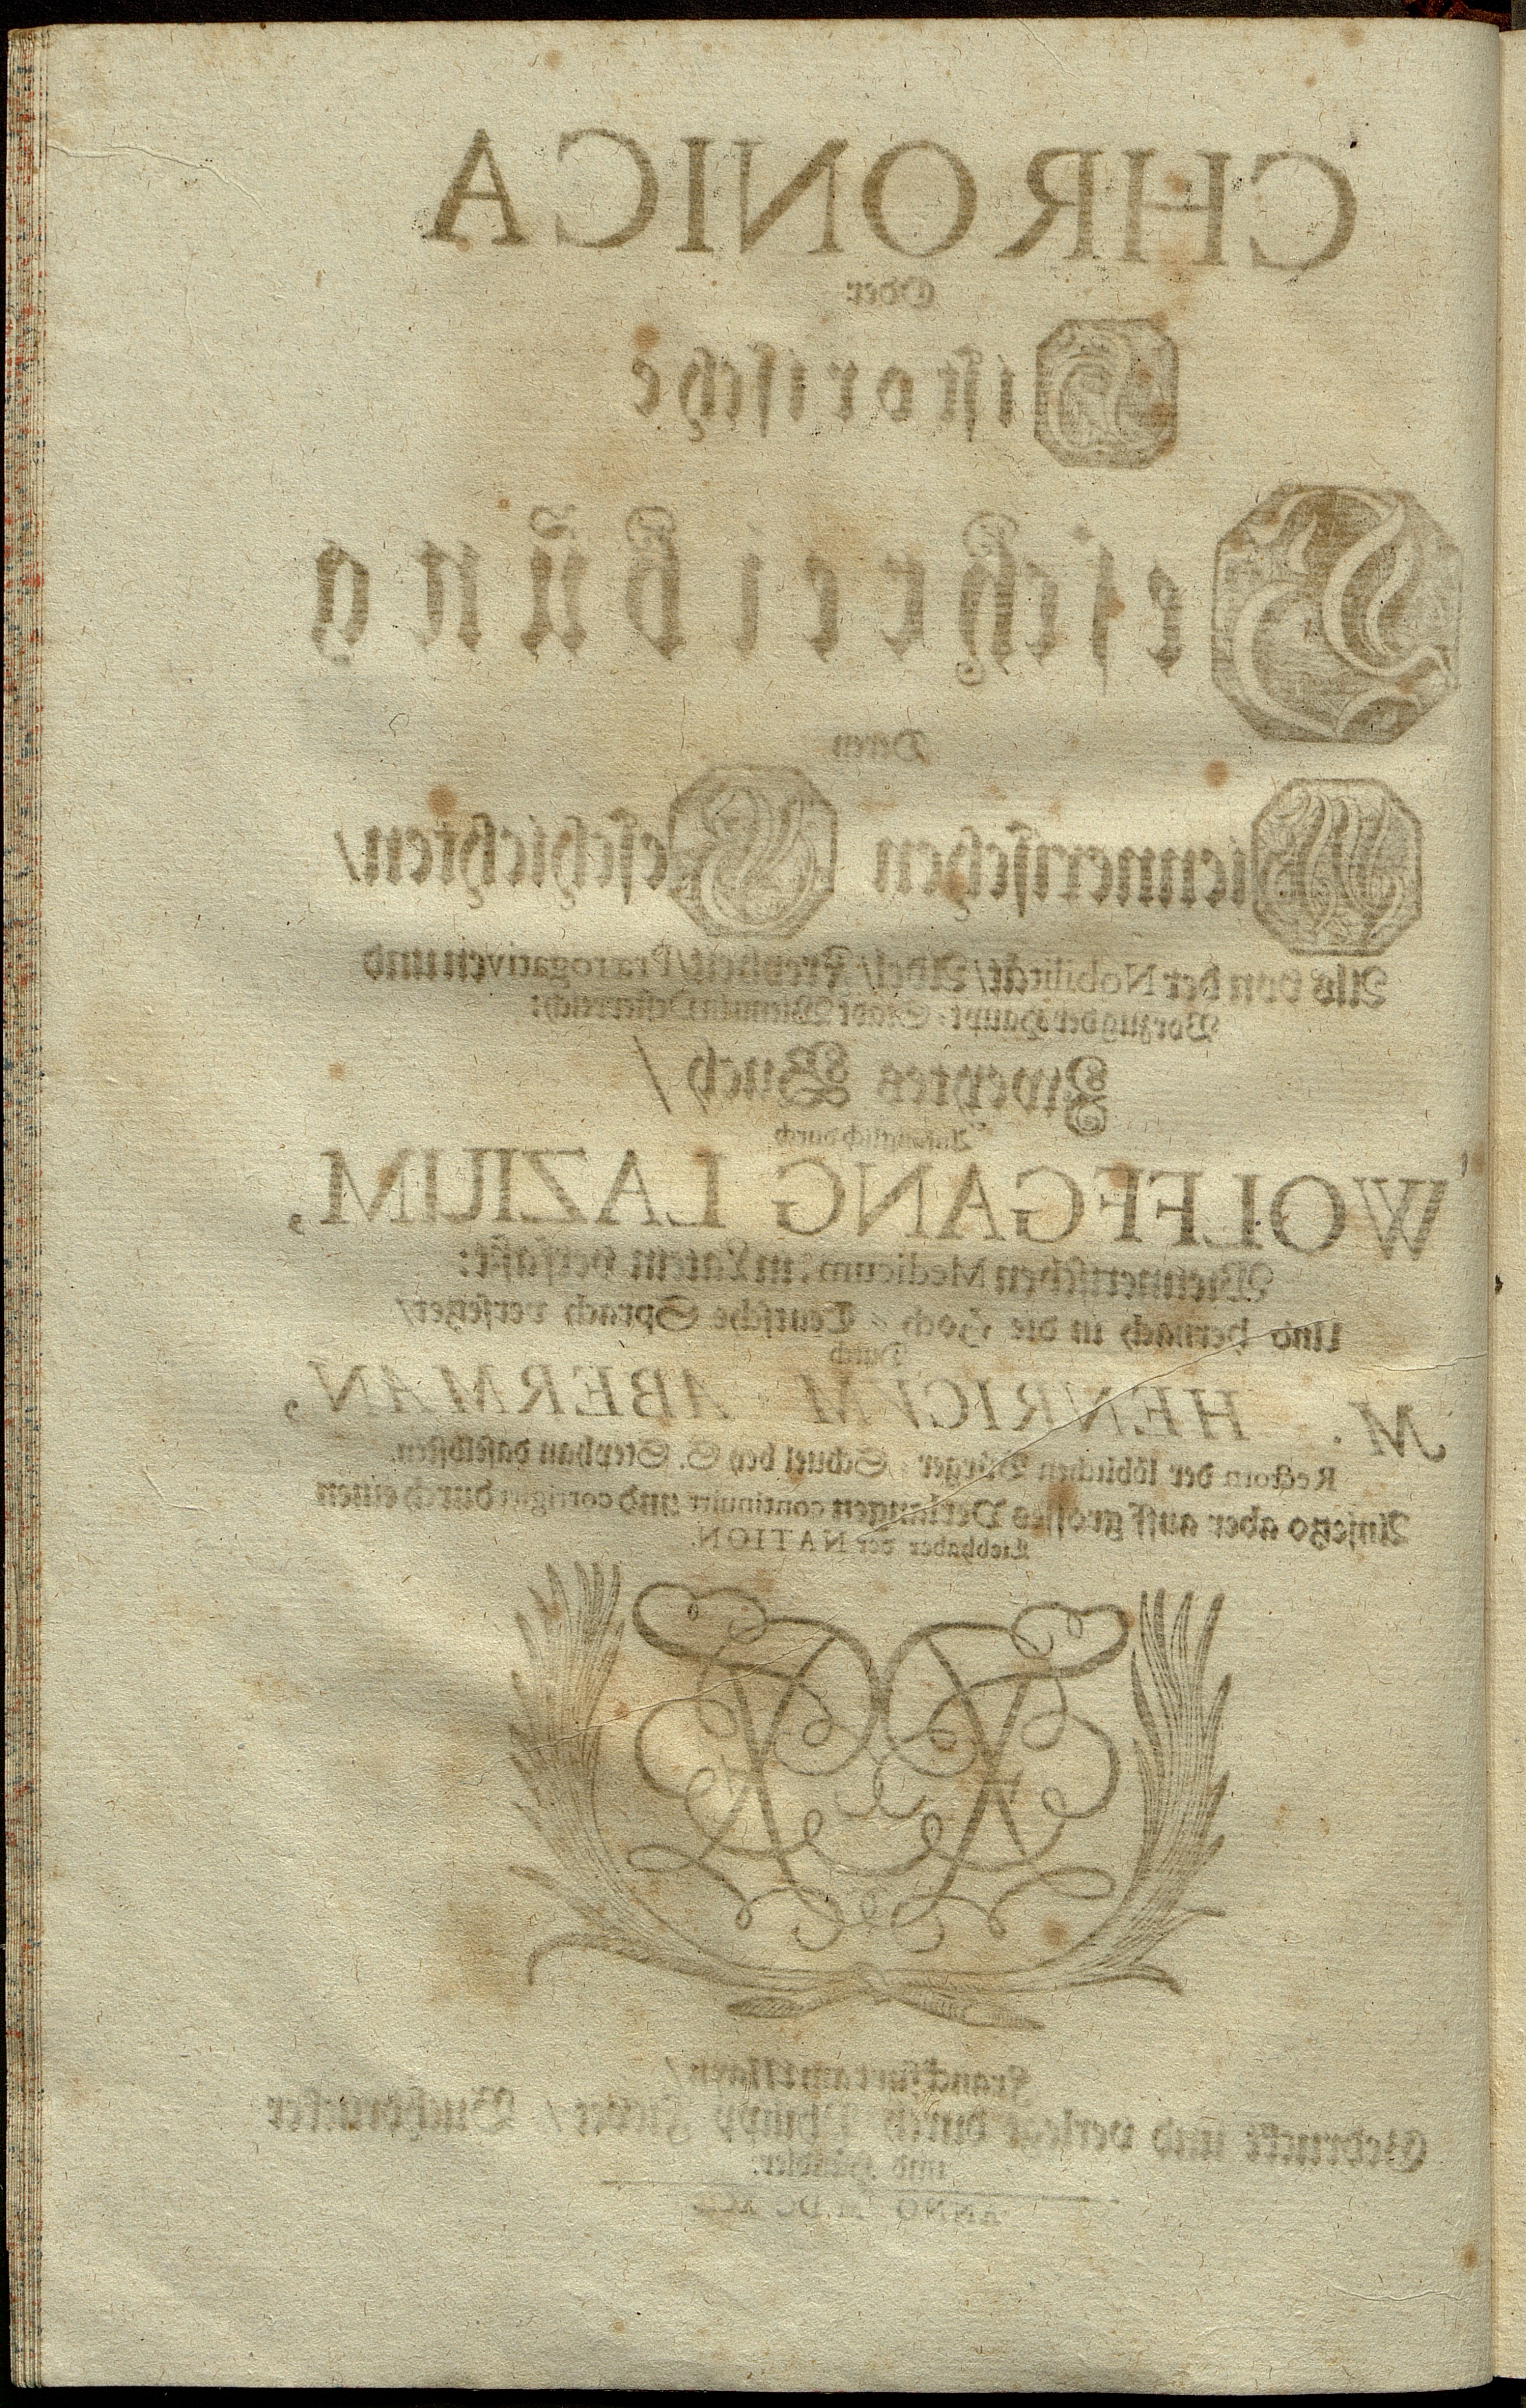 CHRONICA
Oder
Historische
Beschreibung
Deren
Wiennerischen Geschichten/
Als von der Nobilität/ Adel/ Freyheit/ Prærogativen und
Vorzug der Haupt-Stadt Wienn in Oesterreich:
Zweytes Buch/
Anfänglich durch
WOLFFGANG LAZIUM,
Wiennerischen Medicum, in Latein verfast:
Und hernach in die Hoch-Teutsche Sprach versetzet/
Durch
M. HENRICVM ABERMAN,
Rectorn der löblichen Burger-Schuel bey S. Stephan daselbsten.
Anjetzo aber auff grosses Verlangen continuirt und corrigirt durch einen
Liebhaber der NATION.
Franckfurt am Mayn/
Gedruckt und verlegt durch Philipp Fievet/ Buchdrucker
und Händler.
ANNO M.DC